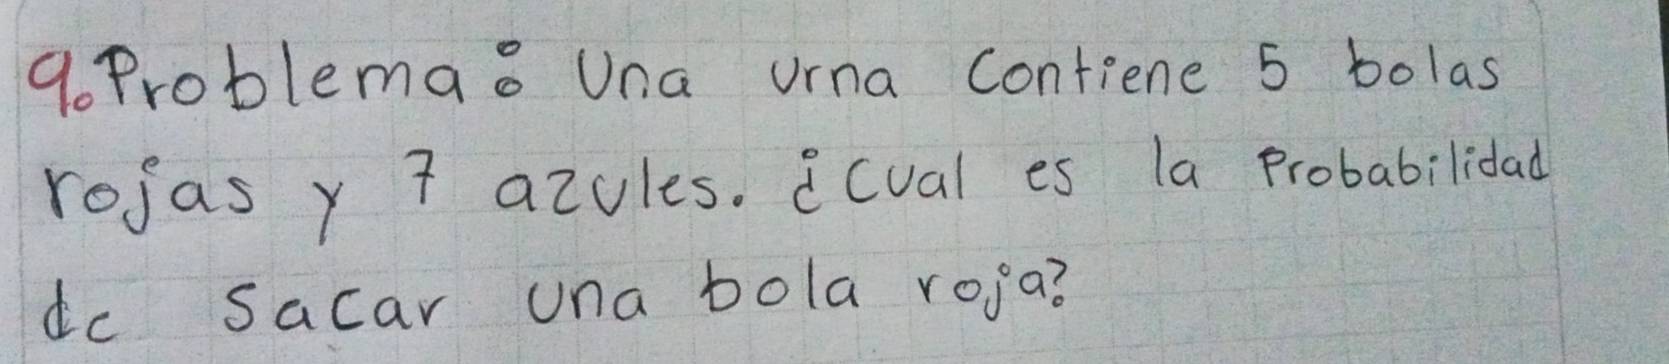 9. Problema: Una urna contiene 5 bolas
rojas y 7 azules. ¿cual es la Probabilidad
de sacar una bola roja?